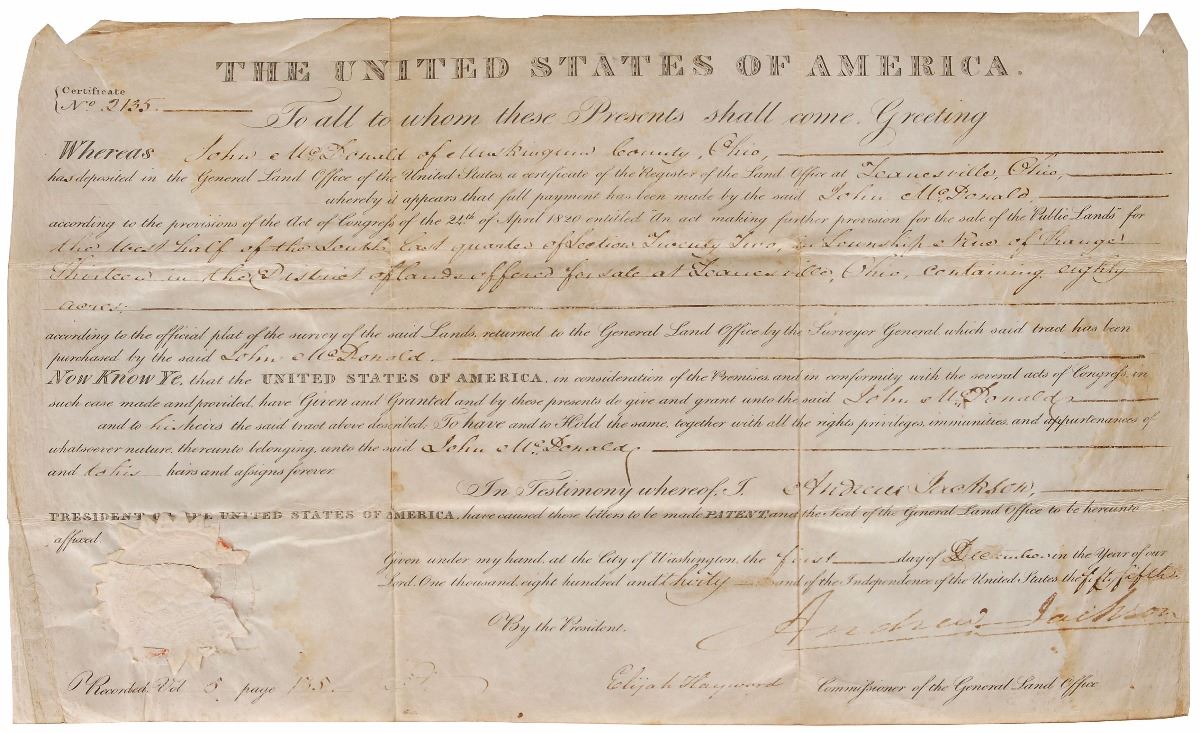 THE UNITED STATES OF AMERICA.
Certificate
No. 2135.
To all to whom these Presents shall come, Greeting
Whereas John McDonald of Muskingum County, Ohio,
has deposited in the General Land Office of the United States, a certificate of the Register of the Land Office at Zanesville, Ohio,
whereby it appears that full payment has been made by the said John McDonald
according to the provisions of the Act of Congress of the 24th of April 1820 entitled "An act making further provision for the sale of the Public Lands" for
the West half of the South East quarter of Section Twenty Two, in Township Nine of Range
Thirteen in the District of lands offered for sale at Zanesville, Ohio, containing eighty
acres,
according to the official plat of the survey of the said Lands, returned to the General Land Office by the Surveyor General, which said tract has been
purchased by the said John McDonald.
Now Know Ye, that the UNITED STATES OF AMERICA, in consideration of the Premises, and in conformity with the several acts of Congress, in
such case made and provided, have Given and Granted, and by these presents do give and grant unto the said John McDonald,
and to his heirs the said tract above described: To have and to Hold the same, together with all the rights, privileges, immunities, and appurtenances of
whatsoever nature, thereunto belonging, unto the said John McDonald,
and to his heirs and assigns forever.
In Testimony whereof, I, Andrew Jackson,
PRESIDENT OF THE UNITED STATES OF AMERICA, have caused these letters to be made PATENT, and the Seal of the General Land Office to be hereunto
affixed.
Given under my hand, at the City of Washington, the first day of December in the Year of our
Lord, One thousand, eight hundred and thirty and of the Independence of the United States the fifty fifth
Andrew Jackson
By the President.
Elijah Hayward Commissioner of the General Land Office
Recorded, Vol 5 page 135.